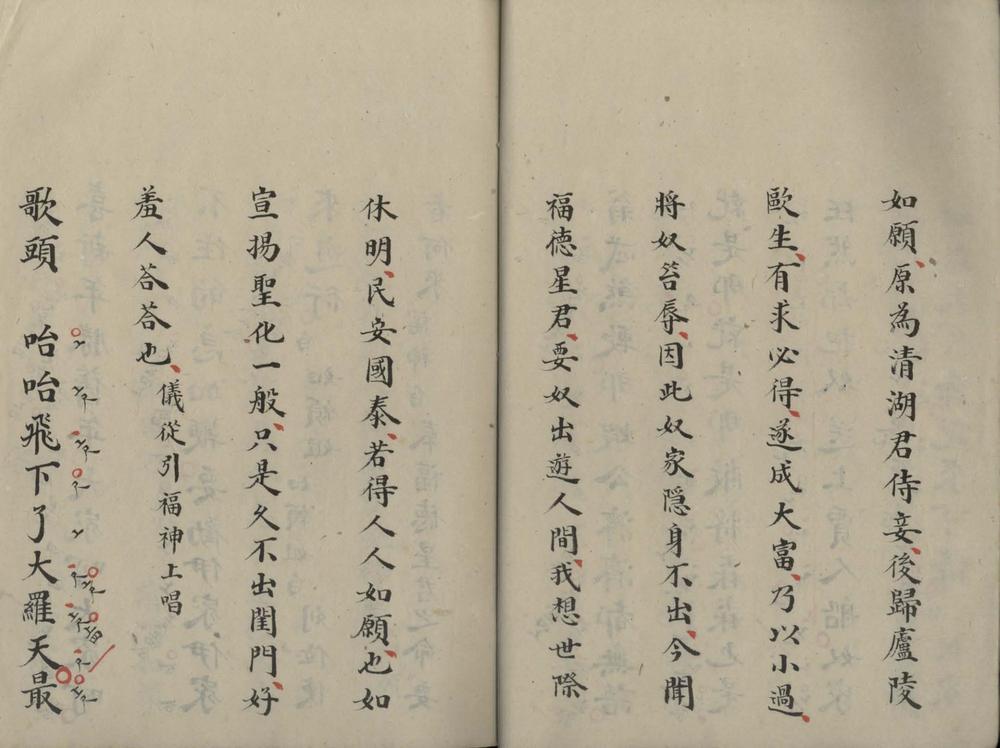 如願、原為清湖君侍妾、後歸廬陵
歐生、有求必得、遂成大富、乃以小過、
將奴笞辱、因此奴家隱身不出、今聞
福德星君、要奴出遊人間、我想世際
休明、民安國泰、若得人人如願、也如
宣揚聖化一般、只是久不出閨門、好
羞人荅荅也、儀從引福神上唱
歌頭 咍咍飛下了大羅天最